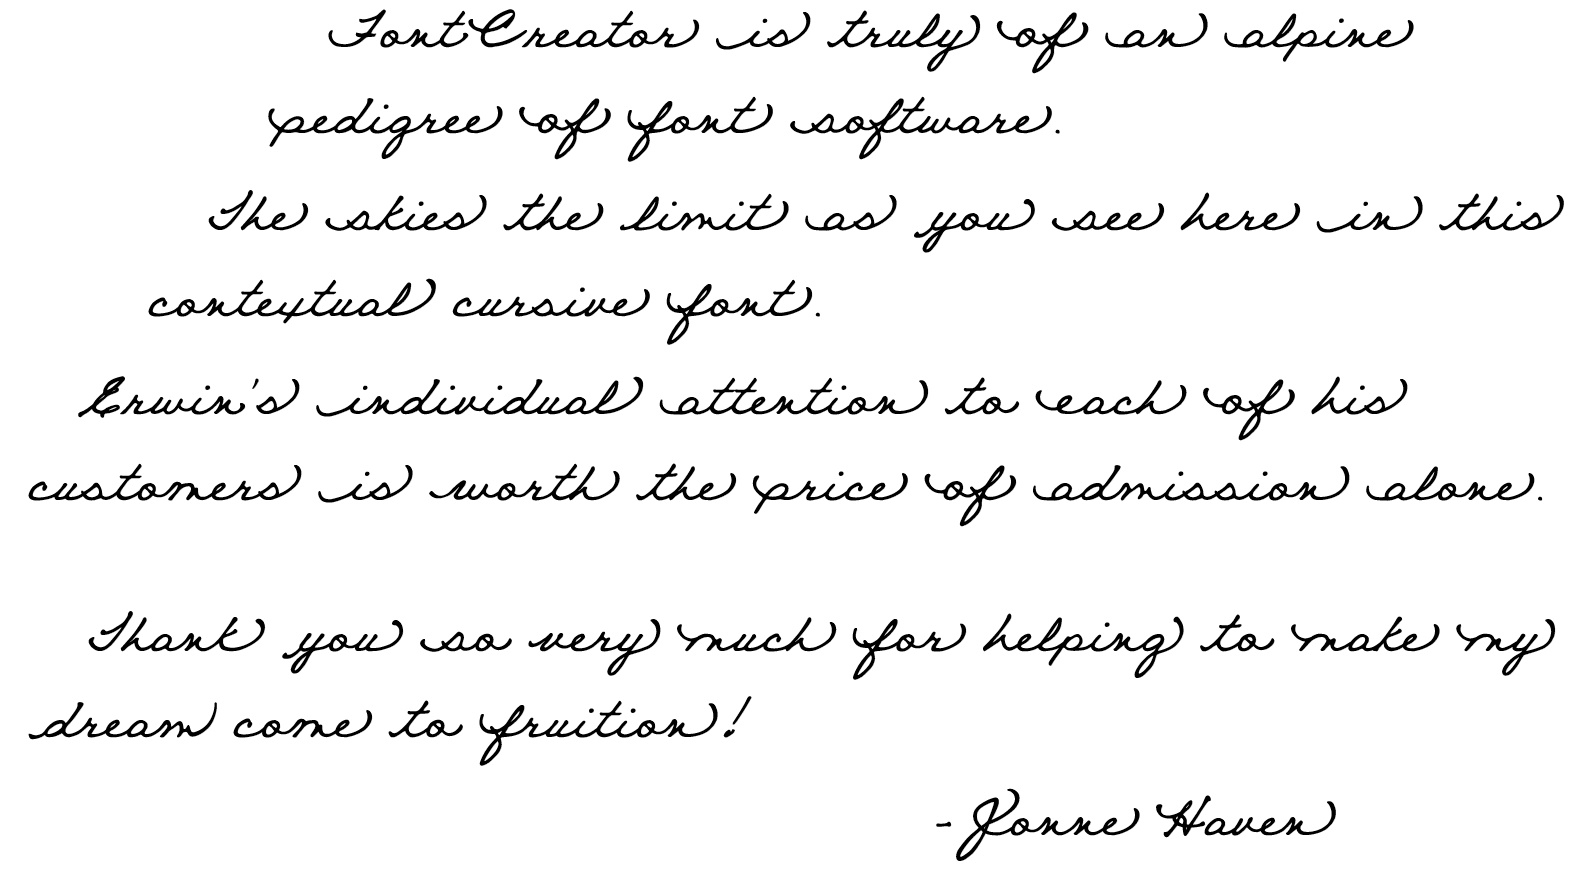 FontCreator is truly of an alpine
pedigree of font software.
The skies the limit as you see here in this
contextual cursive font.
Erwin's individual attention to each of his
customers is worth the price of admission alone.
Thank you so very much for helping to make my
dream come to fruition!
- Haven